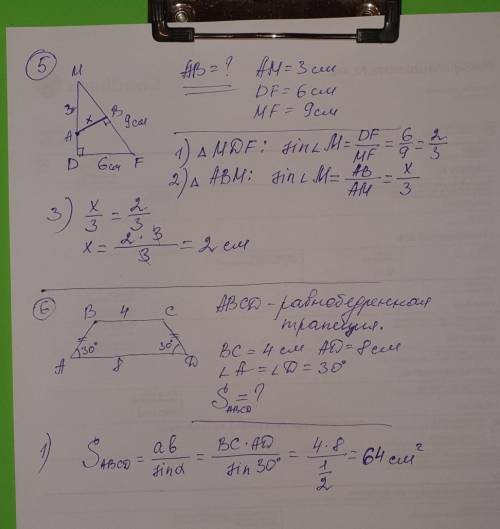 5
M
3
A
x
B
9см
D
6см
F
AB = ? AM = 3 см
DF = 6 см
MF = 9 см
1) △ MDF: sin∠M = DF/MF = 6/9 = 2/3
2) △ ABM: sin∠M = AB/AM = x/3
3) x/3 = 2/3
x = 2·3/3 = 2 см
6
B 4 C
A 30° 8 30° D
ABCD – равнобедренная
трапеция.
BC = 4 см AD = 8 см
∠A = ∠D = 30°
S ABCD = ?
1) S ABCD = ab/sinα = BC·AD/sin 30° = 4·8/(1/2) = 64 см²